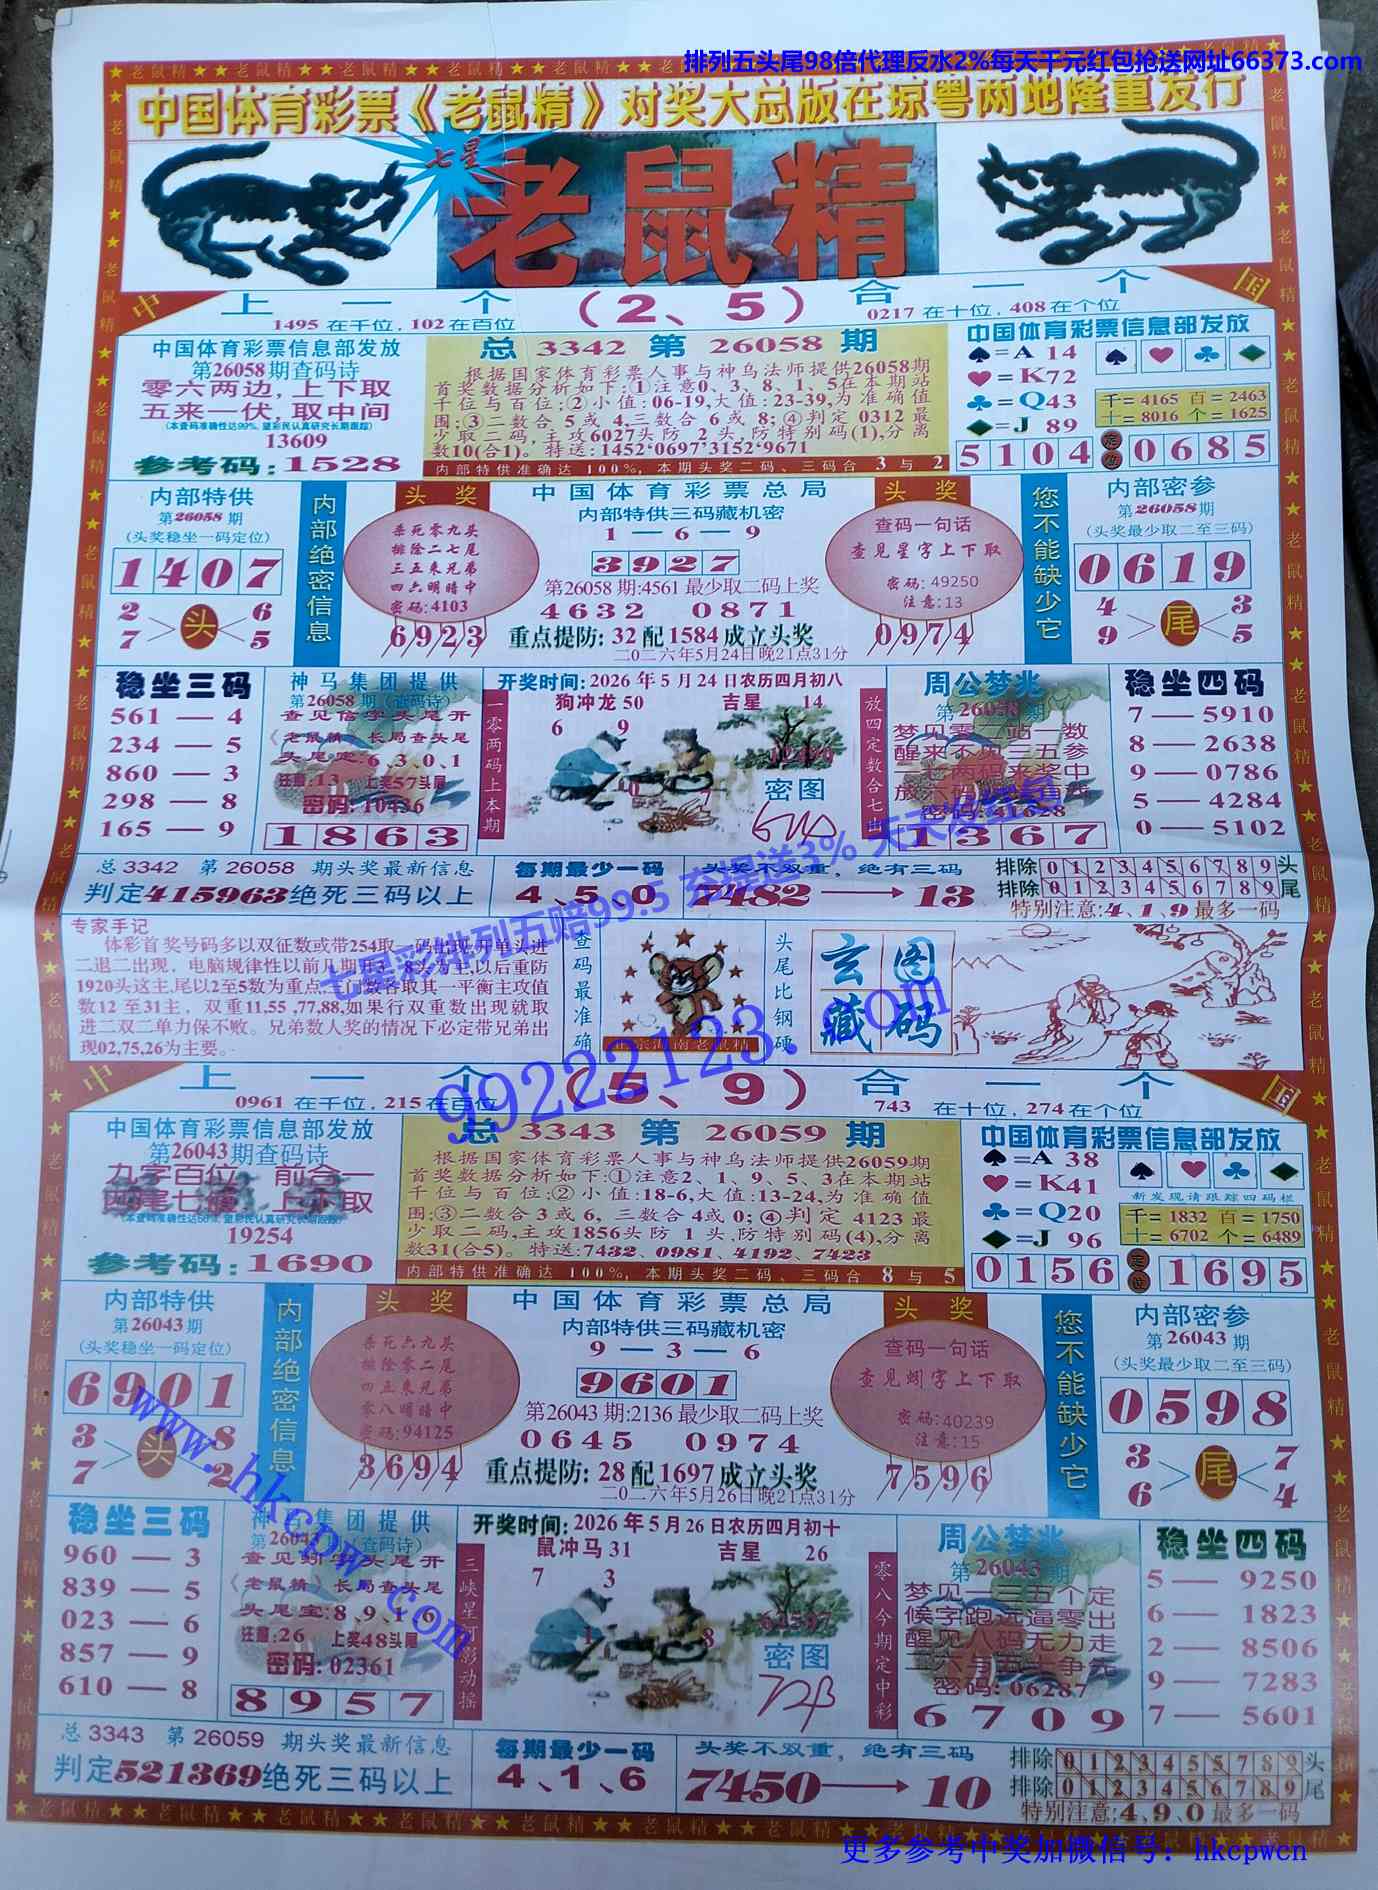 排列五头尾98倍代理反水2%每天千元红包抢送网址66373.com
中国体育彩票《老鼠精》对奖大总版在琼粤两地隆重发行
七星
老鼠精
中
上一个
(2、5)
合一个
国
1495 在千位, 102 在百位
0217 在十位, 408 在个位
中国体育彩票信息部发放
第26058期查码诗
零六两边, 上下取
五来一伏, 取中间
(本查码准确性达99%, 望彩民认真研究长期跟踪)
13609
参考码: 1528
总 3342 第 26058 期
根据国家体育彩票人事与神乌法师提供26058期
首奖数据分析如下:①注意0、3、8、1、5在本期站
千位与百位;②小值:06-19,大值:23-39,为准确值
围;③二数合 5 或 4,三数合 6 或 8;④判定 0312 最
少取二码, 主攻6027头防 2 头, 防特别码(1),分离
数10(合1)。特送:1452*0697*3152*9671
内部特供准确达 100%, 本期头奖二码、三码合 3 与 2
中国体育彩票信息部发放
♠=A 14
♥=K72
♣=Q43
♦=J 89
千= 4165 百= 2463
十= 8016 个= 1625
5104 定位 0685
内部特供
第26058 期
(头奖稳坐一码定位)
1407
2 6
头
7 5
内部绝密信息
头奖
杀死零九头
排除二七尾
三五来兄弟
四六明暗中
密码:4103
6923
中国体育彩票总局
内部特供三码藏机密
1—6—9
3927
第26058 期:4561 最少取二码上奖
4632 0871
重点提防: 32 配 1584 成立头奖
二〇二六年5月24日晚21点31分
头奖
查码一句话
查见星字上下取
密码: 49250
注意: 13
0974
您不能缺少它
内部密参
第26058 期
(头奖最少取二至三码)
0619
4 3
尾
9 5
稳坐三码
561 — 4
234 — 5
860 — 3
298 — 8
165 — 9
神马集团提供
第26058 期(查码诗)
查见信字头尾开
《老鼠精》长局查头尾
头尾定:6、3、0、1
注意:13 上奖57头尾
密码: 10436
1863
一零两码上本期
开奖时间: 2026 年 5 月 24 日农历四月初八
狗冲龙 50 吉星 14
6 9
密图
放四定数合七山
周公梦兆
第26058 期
梦见零二站一数
醒来不见三五参
一七两码来奖中
1367
稳坐四码
7 — 5910
8 — 2638
9 — 0786
5 — 4284
0 — 5102
总 3342 第 26058 期头奖最新信息
判定415963绝死三码以上
每期最少一码
4、5、0
头奖不双重, 绝有三码
7482 → 13
排除 0 1 2 3 4 5 6 7 8 9 头
排除 0 1 2 3 4 5 6 7 8 9 尾
特别注意:4、1、9 最多一码
七星彩排列五赔99.5 充提送3% 天天
99222123.com
专家手记
体彩首奖号码多以双征数或带254取一码出现,开单头进
二退二出现, 电脑规律性以前几期开3、8头为主,以后重防
1920头这主,尾以2至5数为重点,三门数各取其一平衡主攻值
数12 至31主, 双重11,55 ,77,88,如果行双重数出现就取
进二双二单力保不败。兄弟数人奖的情况下必定带兄弟出
现02,75,26为主要。
查码最准确
正宗海南老鼠精
头尾比钢硬
玄图藏码
中
上一个
(5、9)
合一个
国
0961 在千位, 215 在百位
743 在十位, 274 在个位
中国体育彩票信息部发放
第26043期查码诗
九字百位 前合一
19254
参考码: 1690
总 3343 第 26059 期
根据国家体育彩票人事与神乌法师提供26059期
首奖数据分析如下:①注意2、1、9、5、3在本期站
千位与百位;②小值:18-6,大值:13-24,为准确值
围;③二数合 3 或 6, 三数合 4或 0; ④判定 4123 最
少取二码,主攻1856头防 1 头,防特别码(4),分离
数31(合5)。特送:7432、0981、4192、7423
内部特供准确达 100%, 本期头奖二码、三码合 8 与 5
中国体育彩票信息部发放
♠=A 38
♥=K41
♣=Q20
♦=J 96
新发现请跟踪四码栏
千= 1832 百= 1750
十= 6702 个= 6489
0156 定位 1695
内部特供
第26043 期
(头奖稳坐一码定位)
6901
3 8
头
7 2
内部绝密信息
头奖
杀死六九头
排除零二尾
四五来兄弟
零八明暗中
密码: 94125
3694
中国体育彩票总局
内部特供三码藏机密
9—3—6
9601
第26043 期:2136 最少取二码上奖
0645 0974
重点提防: 28 配 1697 成立头奖
二〇二六年5月26日晚21点31分
头奖
查码一句话
查见蚓字上下取
密码: 40239
注意: 15
7596
您不能缺少它
内部密参
第26043 期
(头奖最少取二至三码)
0598
3 7
尾
6 4
稳坐三码
960 — 3
839 — 5
023 — 6
857 — 9
610 — 8
神马集团提供
查见蚓字头尾开
《老鼠精》长局查头尾
头尾定:8、9、1、6
注意:26 上奖48头尾
密码: 02361
8957
三峡星河影动摇
开奖时间: 2026 年 5 月 26 日农历四月初十
鼠冲马 31 吉星 26
7 3
密图
零八今期定中彩
周公梦兆
第26043期
梦见一三五个定
候字跑远逼零出
醒见八码无力走
二六与五七争先
密码: 06287
6709
稳坐四码
5 — 9250
6 — 1823
2 — 8506
9 — 7283
7 — 5601
总 3343 第 26059 期头奖最新信息
判定521369绝死三码以上
每期最少一码
4、1、6
头奖不双重, 绝有三码
7450 → 10
排除 0 1 2 3 4 5 6 7 8 9 头
排除 0 1 2 3 4 5 6 7 8 9 尾
特别注意:4、9、0 最多一码
www.hkcpw.com
更多参考中奖加微信号: hkcpwcn